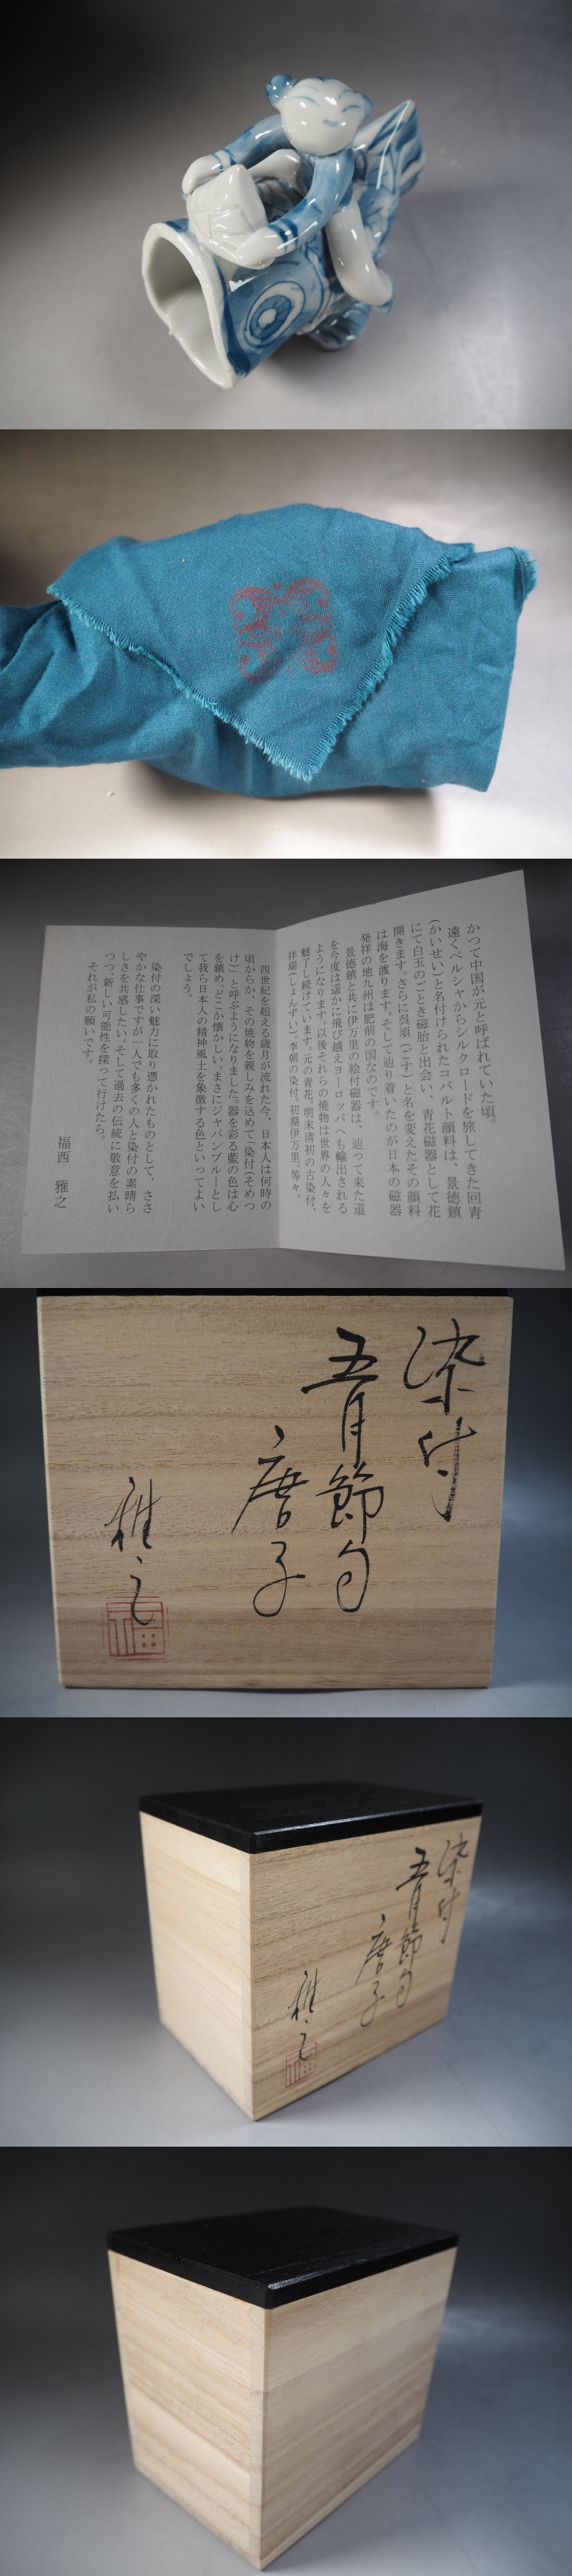 かつて中国が元と呼ばれていた頃。
遠くペルシャからシルクロードを旅してきた回青
(かいせい)と名付けられたコバルト顔料は、景徳鎮
にて白玉のごとき磁胎と出会い、青花磁器として花
開きます。さらに呉須(ごす)と名を変えたその顔料
は海を渡ります。そして辿り着いたのが日本の磁器
発祥の地九州は肥前の国なのです。
景徳鎮と共に伊万里の絵付磁器は、辿って来た道
を今度は遥かに飛び越えヨーロッパへも輸出される
ようになります。以後それらの焼物は世界の人々を
魅了し続けています。元の青花。明末清初の古染付、
祥瑞(しょんずい)、李朝の染付、初期伊万里。等々。
四世紀を超える歳月が流れた今、日本人は何時の
頃からか、その焼物を親しみを込めて「染付(そめつ
け)」と呼ぶようになりました。器を彩る藍の色は心
を鎮め、どこか懐かしい。まさにジャパンブルーとし
て我ら日本人の精神風土を象徴する色といってよい
でしょう。
染付の深い魅力に取り憑かれたものとして、ささ
やかな仕事ですが一人でも多くの人と染付の素晴ら
しさを共感したい。そして過去の伝統に敬意を払い
つつ、新しい可能性を探って行けたら。
それが私の願いです。
福西 雅之
染付
五月節句
唐子
雅之
福
染付
五月節句
唐子
雅之
福